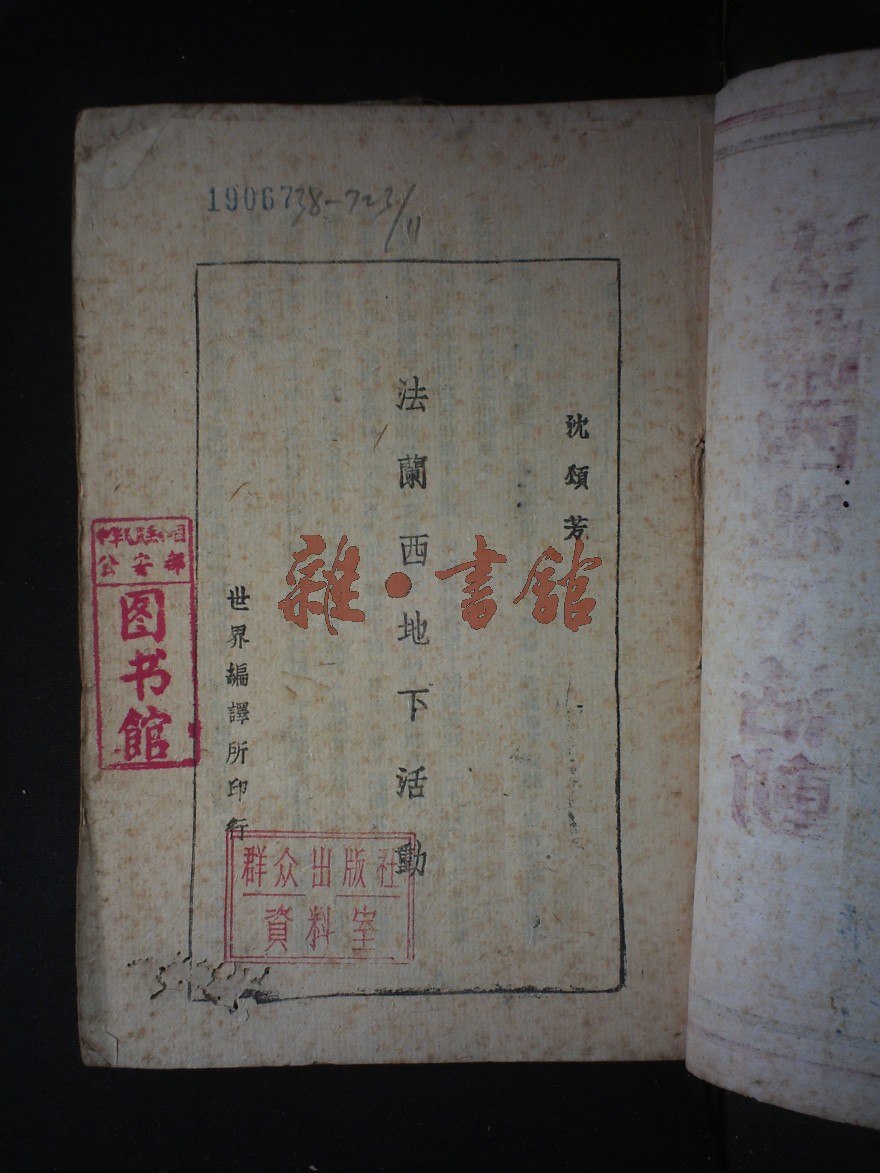 1906738-723/11
沈頌芳
法蘭西地下活動
世界編譯所印行
公安部
图书馆
群众出版社
資料室
雜·書館